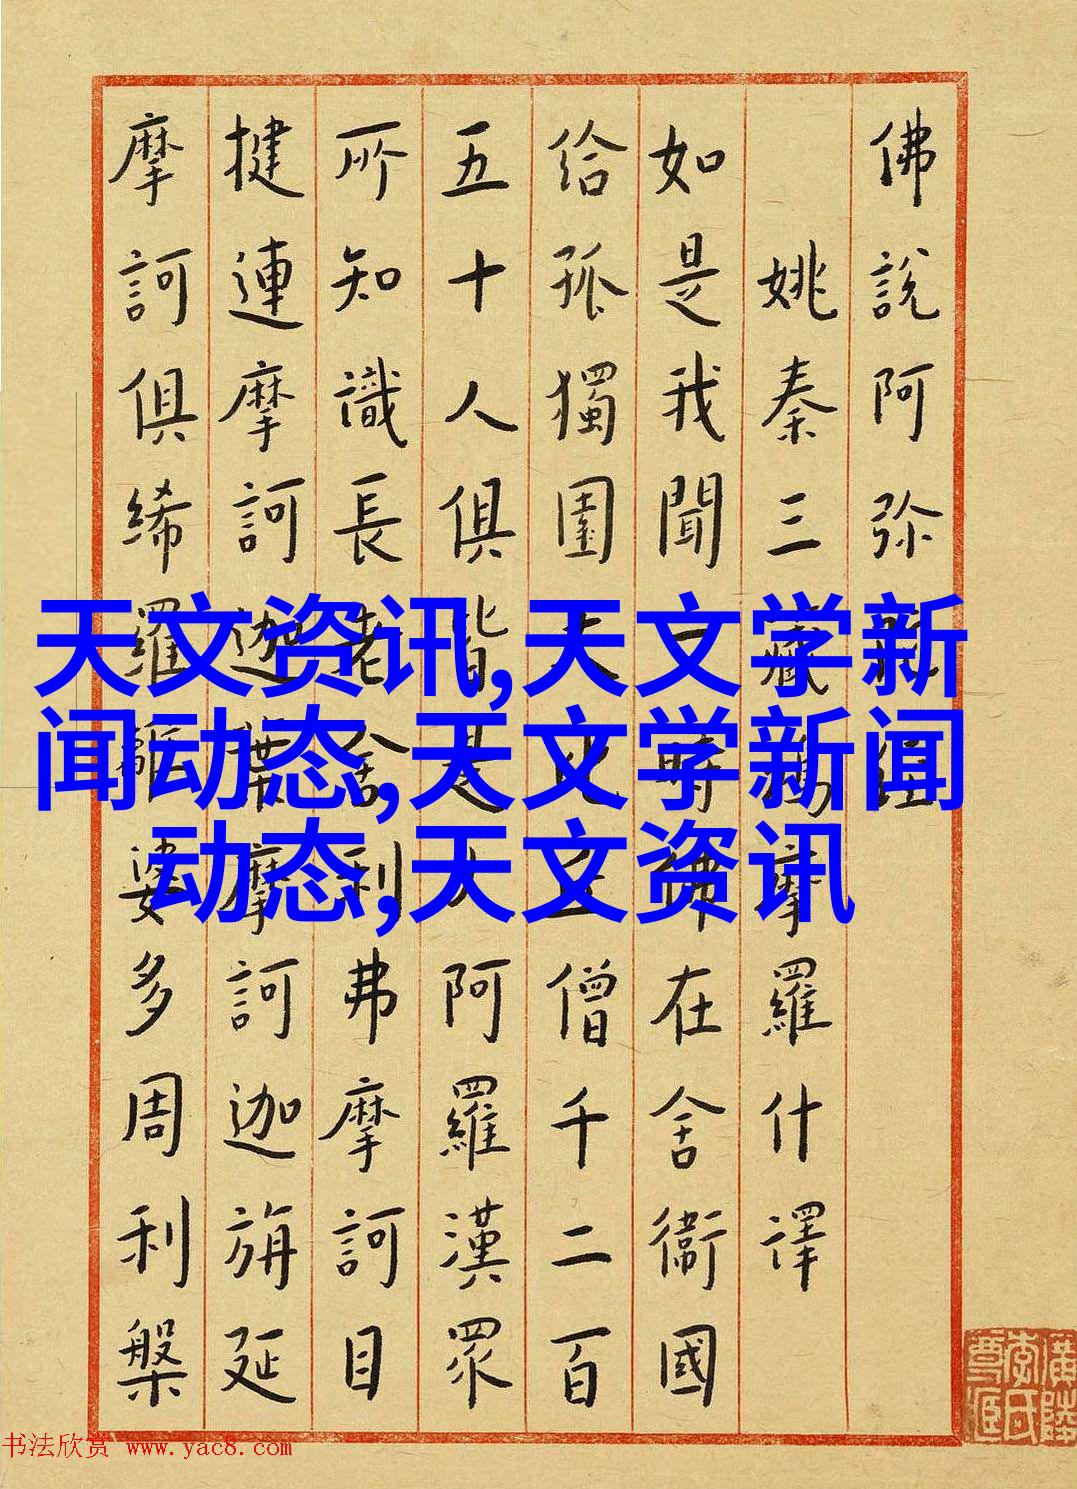 佛說阿弥
姚秦三藏摩羅什譯
如是我聞一時佛在舍衞國
给孤獨園大比丘僧千二百
五十人俱皆是大阿羅漢眾
所知識長老舍利弗摩訶目
揵連摩訶迦葉摩訶迦旃延
摩訶俱絺羅離婆多周利槃
天文资讯,天文学新
闻动态,天文学新闻
动态,天文资讯
书法欣赏 www.yac8.com